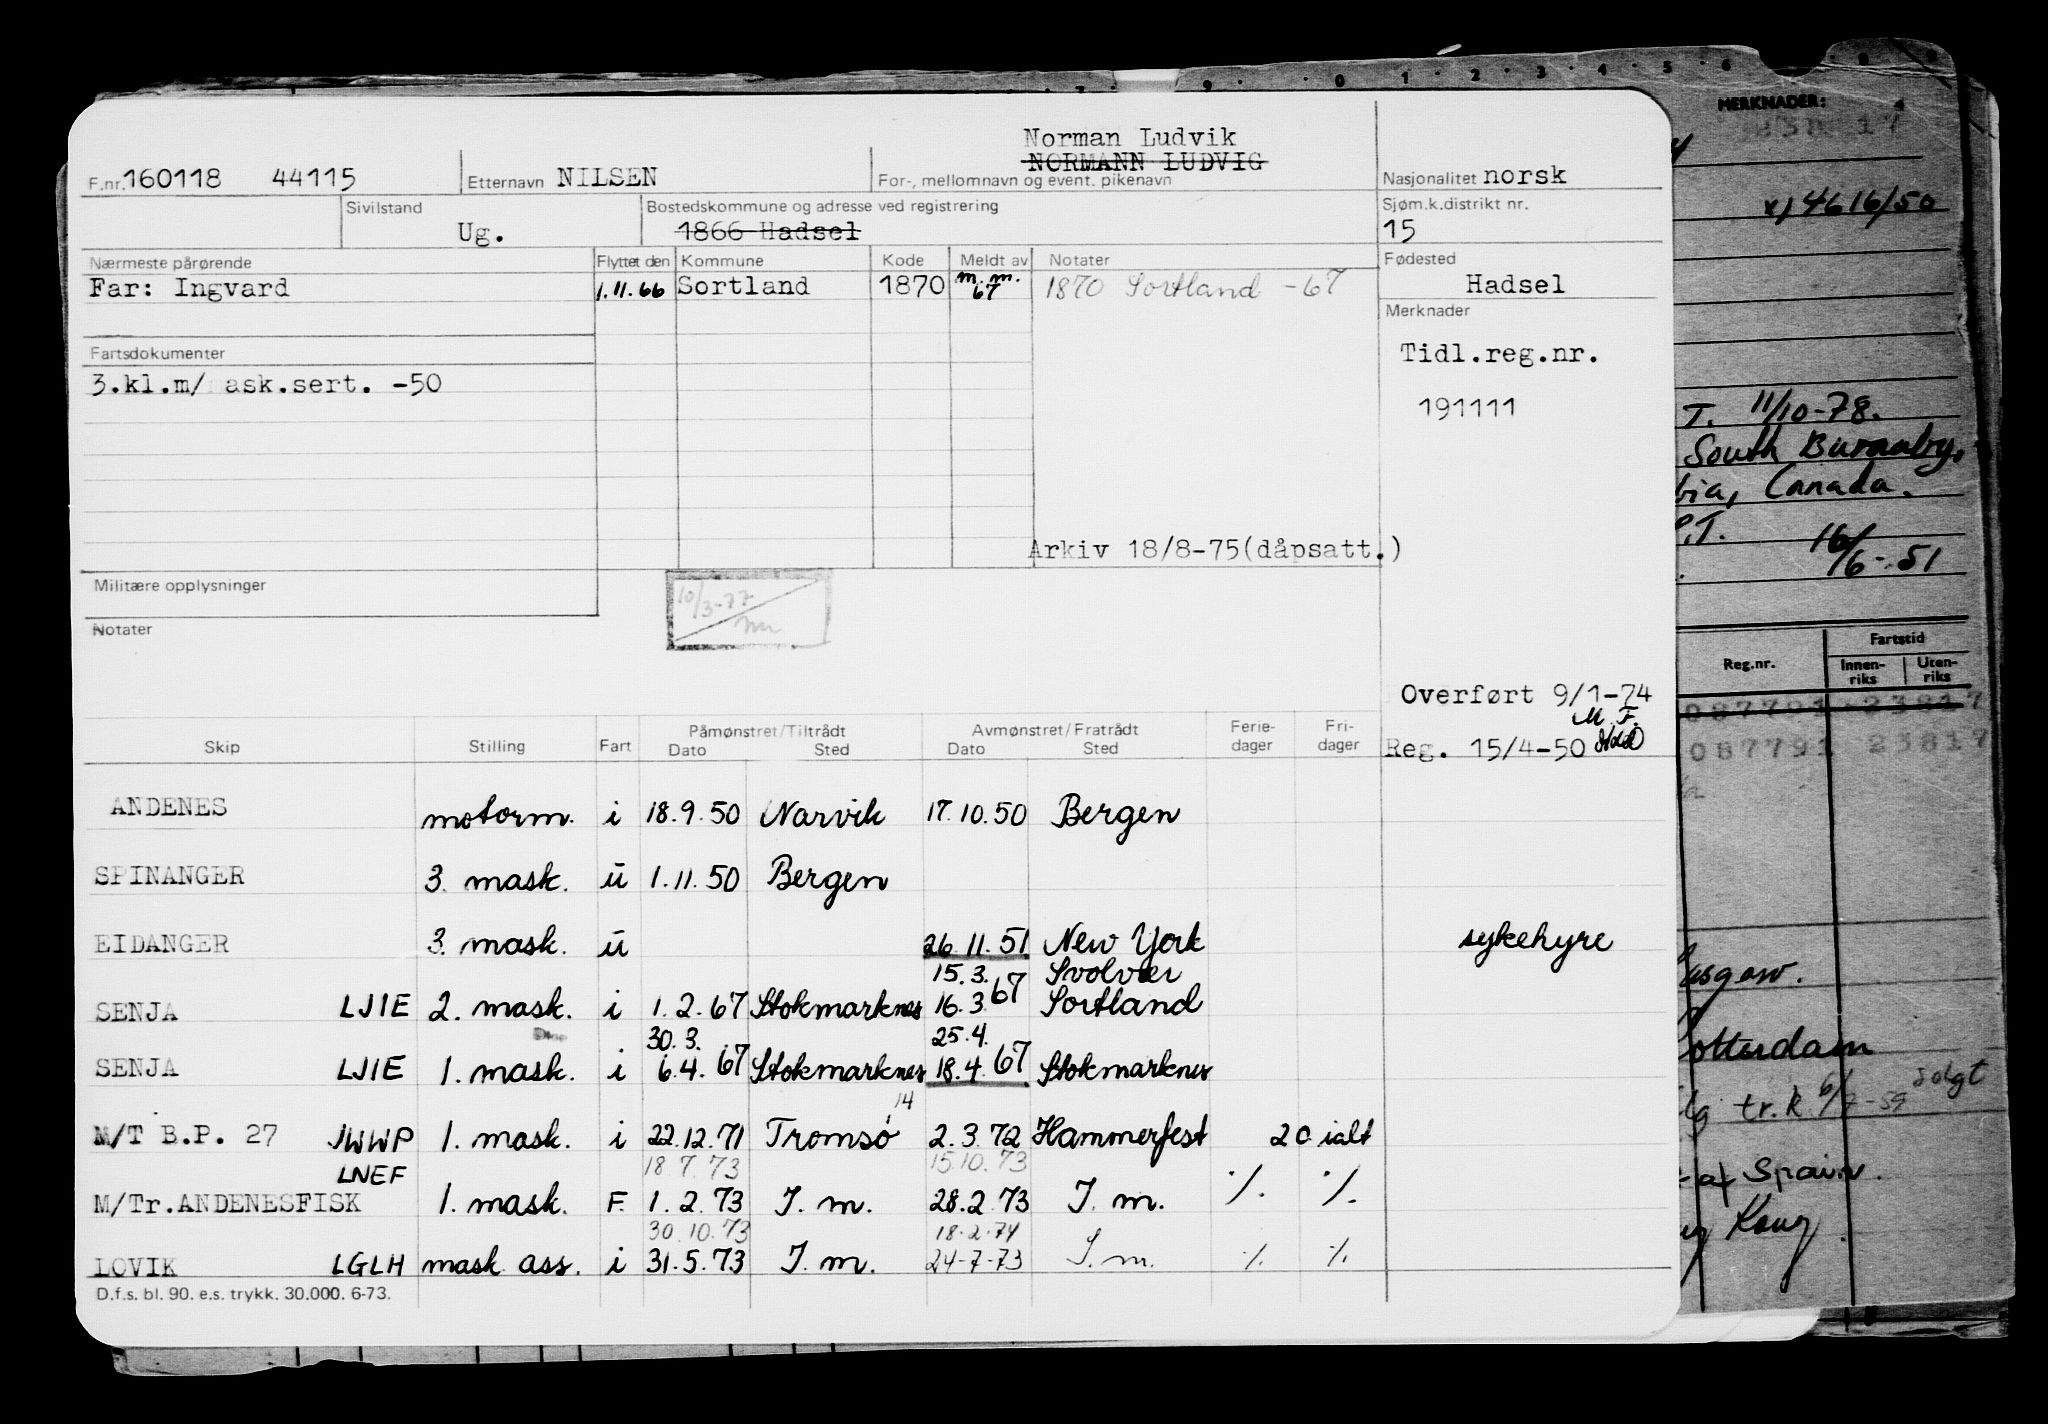 Norman Ludvik
F.nr. 160118 44115 Etternavn NILSEN NORMANN LUDVIG Nasjonalitet norsk
For-, mellomnavn og event. pikenavn
Sivilstand Ug. Bostedskommune og adresse ved registrering 1866 Hadsel Sjøm.k.distrikt nr. 15
Nærmeste pårørende Flyttet den Kommune Kode Meldt av Notater Fødested
Far: Ingvard 1.11.66 Sortland 1870 m.m. 67 1870 Sortland -67 Hadsel
Merknader
Fartsdokumenter Tidl.reg.nr.
3.kl.m/ ask.sert. -50 191111
Arkiv 18/8-75(dåpsatt.)
Militære opplysninger
10/3-77
Notater
Overført 9/1-74
M.F.
Reg. 15/4-50
Skip Stilling Fart Påmønstret/Tiltrådt Dato Sted Avmønstret/Fratrådt Dato Sted Ferie-dager Fri-dager
ANDENES motorm. i 18.9.50 Narvik 17.10.50 Bergen
SPINANGER 3. mask. u 1.11.50 Bergen
EIDANGER 3. mask. u 26.11.51 New York sykehyre
15.3. Svolvær
SENJA LJIE 2. mask. i 1.2.67 Stokmarknes 16.3.67 Sortland
30.3. 25.4.
SENJA LJIE 1. mask. i 6.4.67 Stokmarknes 18.4.67 Stokmarknes
14
M/T B.P. 27 JWWP 1. mask. i 22.12.71 Tromsø 2.3.72 Hammerfest 20 ialt
LNEF 18.7.73 15.10.73
M/Tr.ANDENESFISK 1. mask. F. 1.2.73 I.m. 28.2.73 I.m. ./. ./.
30.10.73 18.2.74
LOVIK LGLH mask. ass. i 31.5.73 I.m. 24-7-73 I.m. ./. ./.
D.f.s. bl. 90. e.s. trykk. 30.000. 6-73.
9 0 1 2 3 4 5 6
MERKNADER:
x) 4616/50
T. 11/10-78.
South Burnaby,
bia, Canada.
P.T.
16/6-51
Reg.nr. Fartstid
Innen-riks Uten-riks
087791 23817
087791 23817
asgow.
otterdam
solgt
tr.k 6/7-59
af Spain.
Kong